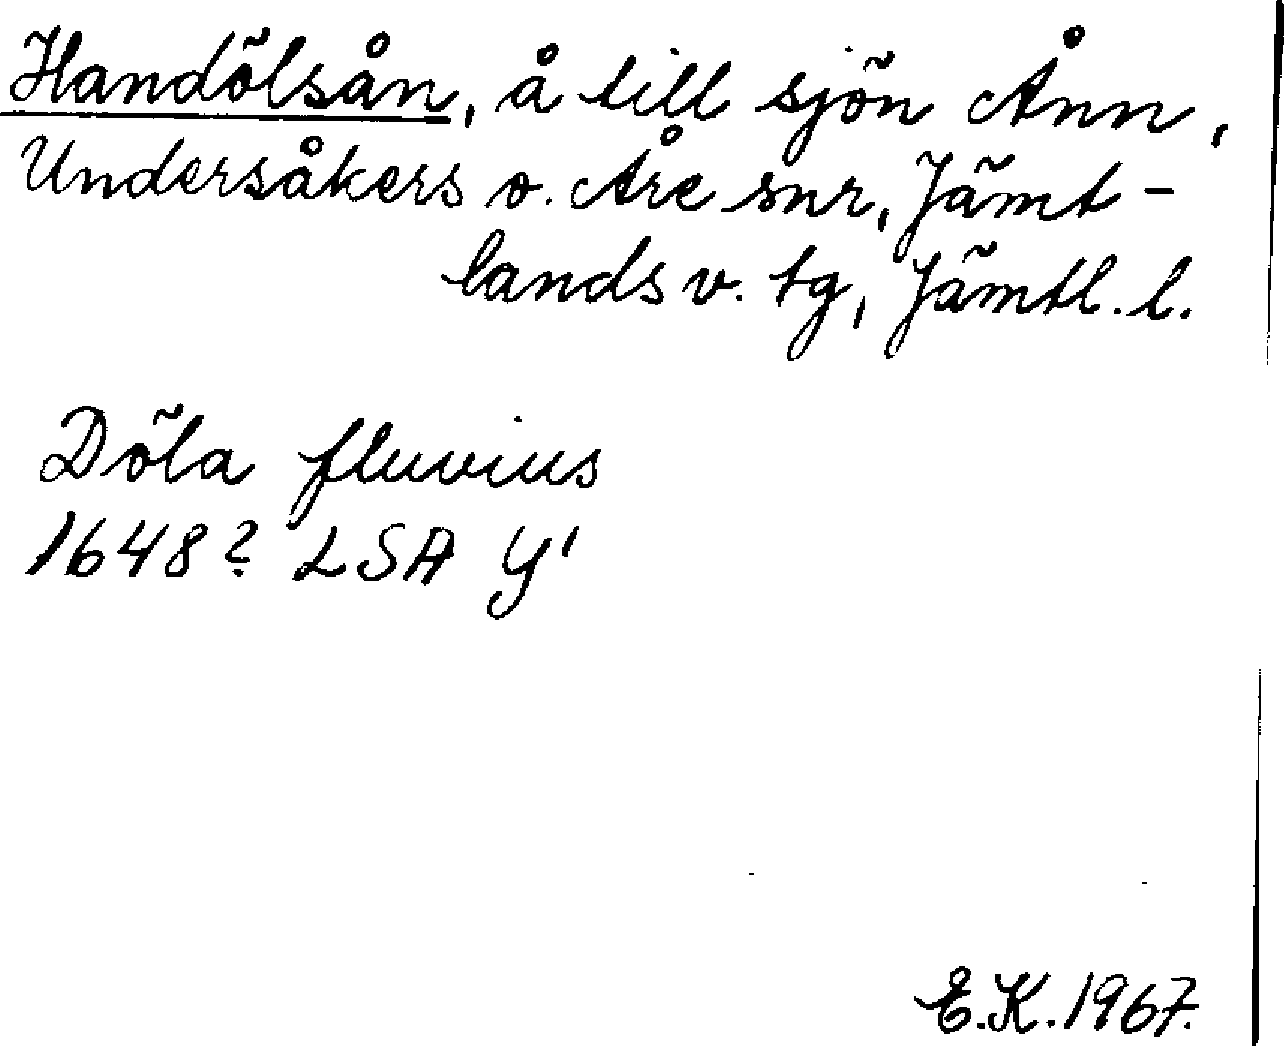 Handölsån, å till sjön Ånn,
Undersåkers o. Åre snr, Jämt-
lands v. tg, Jämtl. l.
Döla fluvius
1648? LSA Y'
E.K. 1967.